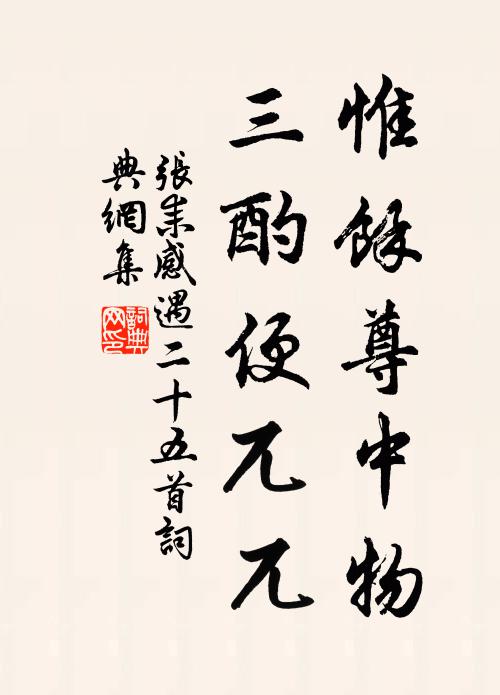 惟餘尊中物
三酌便兀兀
張耒感遇二十五首詞
典網集
詞典
网印